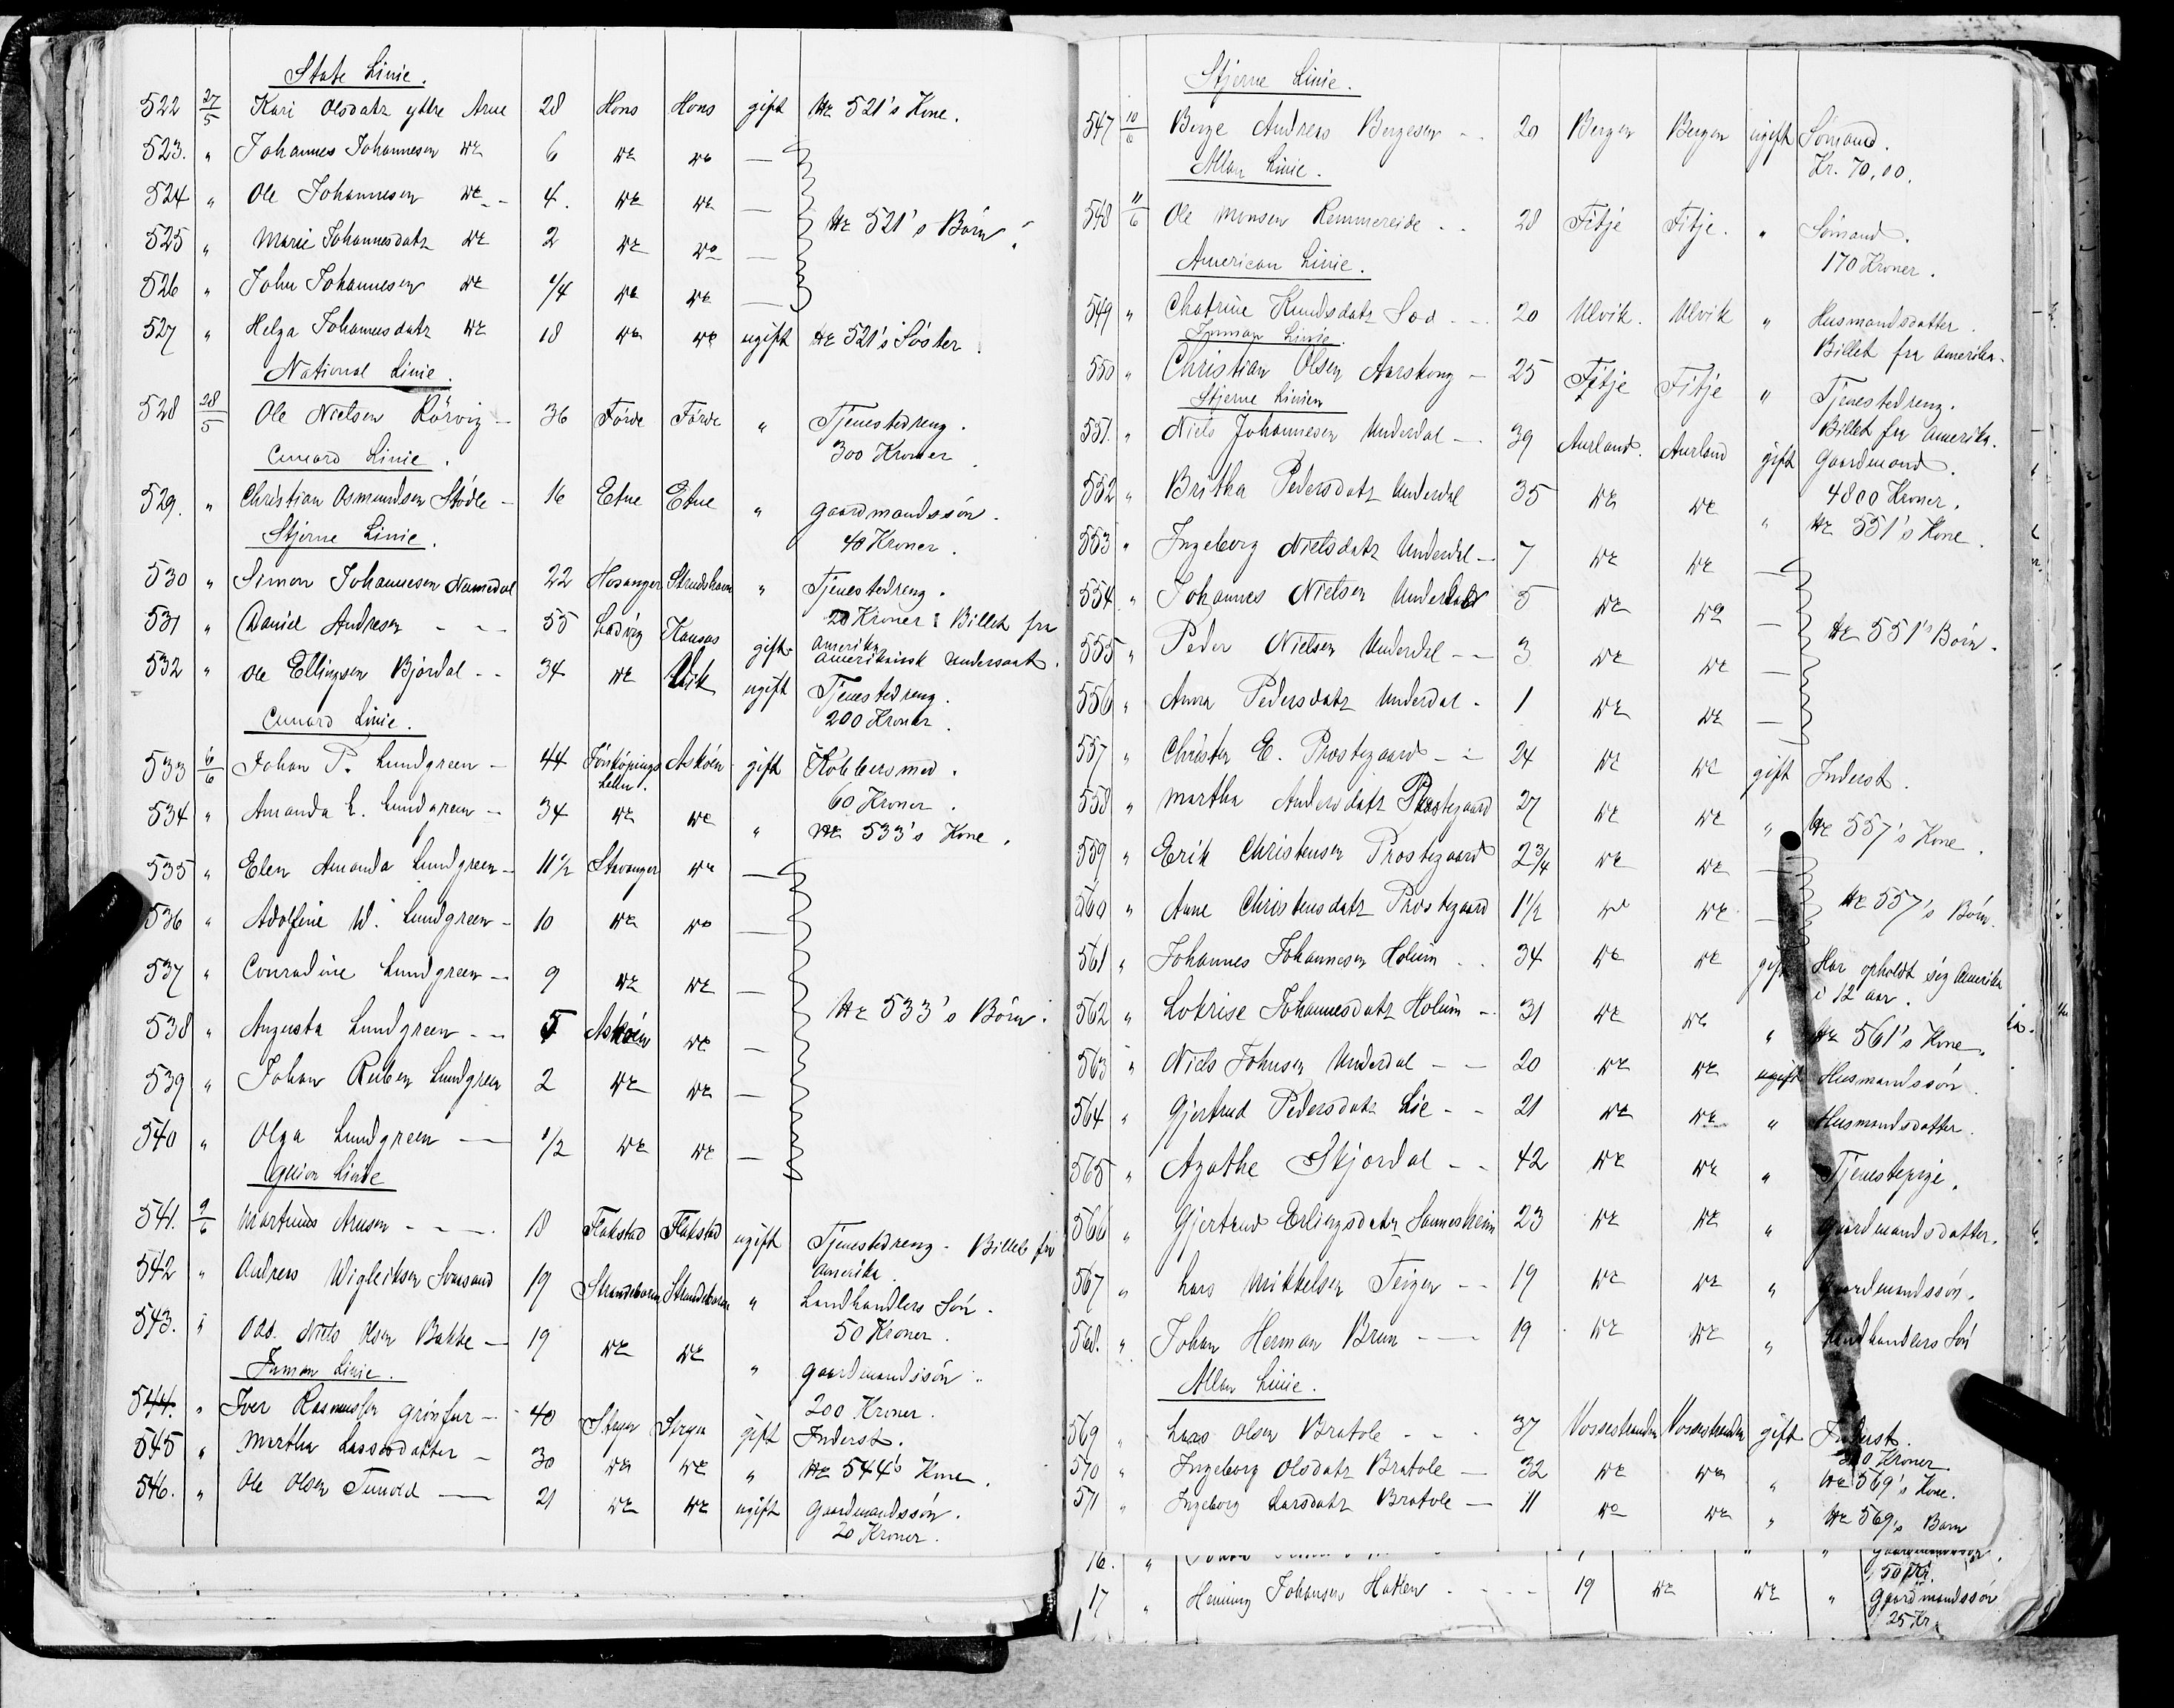 State Linie.
522 27/5 Kari Olsdatr yttre Arne 28 Hons Hons gift No 521's Kone.
523. " Johannes Johannesen do 6 do do —
524 " Ole Johannesen do - 4. do do —
No 521's Børn.
525 " Marie Johannesdatr do 2 do do —
526 " John Johannesen do 1/4 do do —
527 " Helga Johannesdatr do 18 do do ugift No 521's Søster.
National Linie.
528 28/5 Ole Nielsen Rörvig - 36 Førde Førde " Tjenestedreng.
300 Kroner.
Cunard Linie.
529. " Christian Asmundsen Stödle - 16 Etne Etne " Gaardmandssön.
40 Kroner.
Stjerne Linie.
530 " Simon Johannesen 22 Hosanger " Tjenestedreng.
20 Kroner : Billet fra
Amerika
531 " Daniel Andresen - - - 55 Ladvig Kansas gift. Amerikansk Undersaat.
532 " Ole Ellingsen Bjordal - - 34 do Vik ugift Tjenestedreng.
200 Kroner.
Cunard Linie.
533 6/6 Johan P. Lundgreen - 44 Jönköpings Askøen gift Kobbersmed.
Lehn.
60 Kroner.
534 " Amanda L. Lundgreen - 34 do do " No 533's Kone.
535 " Elen Amanda Lundgreen - 11 1/2 Stavanger do —
536 " Adolfine W. Lundgreen - 10 do do —
537 " Conradine Lundgreen - 9 do do —
No 533's Børn.
538 " Augusta Lundgreen - - 5 Askøen do —
539 " Johan Reuben Lundgreen 2 do do —
540 " Olga Lundgreen — 1/2 do do —
Guion Linie
541. 9/6 Martinus Arnesen - - - 18 Flakstad Flakstad ugift Tjenestedreng - Billet fra
Amerika.
542 " Andreas Wigleiksen 19 Strandebarm Strandebarm " Landhandlers Sön.
50 Kroner.
543. " Odd. Niels Olsen Bakke - 19 do do " Gaardmandssön.
200 Kroner.
Inman Linie.
544. " Iver Rasmussen - 40 gift Inderst.
545 " Martha Lassesdatter - 30 do do " No 544's Kone.
546. " Ole Olsen — 21 do do ugift Gaardmandssön.
20 Kroner.
Stjerne Linie.
547 10/6 Berge Andreas Bergesen - - 20 Bergen Bergen ugift Sømand.
Kr. 70,00.
Allan Linie.
548 11/6 Ole Monsen Remmereide - - 28 Fitje Fitje. " Sømand.
170 Kroner.
American Linie.
549 " Chatrine Knudsdatr - - 20 Ulvik. Ulvik " Husmandsdatter.
Billet fra Amerika.
Inman Linie.
550 " Christian Olsen Aarskoug - 25 Fitje Fitje " Tjenestedreng.
Billet fra Amerika.
Stjerne Linien
551. " Niels Johannesen Underdal - 39 Aurland. Aurland gift Gaardmand.
4800 Kroner.
552 " Britha Pedersdatr Underdal 35 do do " No 551's Kone.
553 " Ingeborg Nielsdatr Underdal - 7 do do —
554 " Johannes Nielsen Underdal 5 do do —
No 551's Børn.
555 " Peder Nielsen Underdal - - 3 do do —
556 " Anna Pedersdatr Underdal - 1 do do —
557 " Christen E. Præstegaard - - 24 do do gift Inderst.
558 " Martha Andersdatr Præstegaard 27 do do " No 557's Kone.
559 " Erik Christensen Prostegaard 2 3/4 do do —
560 " Anne Christensdatr Prostegaard 1 1/2 do do —
No 557's Børn.
561 " Johannes Johannesen Holum - - 34 do do gift Har opholdt sig Amerika
i 12 aar.
562 " Lovise Johannesdatr Holum - 31 do do " No 561's Kone.
563 " Niels Johnsen Underdal - - 20 do do ugift Husmandssön.
564 " Gjertrud Pedersdatr Lie - - 21 do do " Husmandsdatter.
565 " Agathe Skjerdal - - 42 do do " Tjenestepige.
566 " Gjertrud Erlingsdatr 23 do do " Gaardmandsdatter.
567 " Lars Mikkelsen Teigen - - 19 do do " Gaardmandssön.
568. " Johan Herman Brun - — 19 do do " Landhandlers Sön
Allan Linie.
569 " Lars Olsen Bratole - - - 37 Vossestranden Vossestranden gift Inderst.
Kroner
570 " Ingeborg Olsdatr Bratole - 32 do do " No 569's Kone.
571 " Ingeborg Larsdatr Bratole - 11 do do " No 569's Barn
16. "
50 Kr.
17 " Henning Johansen - - - 19 do do " Gaardmandssön
25 Kr.